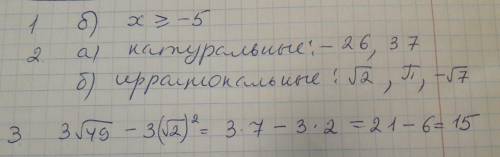 1 б) x ≥ -5
2 а) натуральные: - 26, 37
б) иррациональные: √2, П, -√7
3 3√49 - 3(√2)² = 3·7 - 3·2 = 21 - 6 = 15